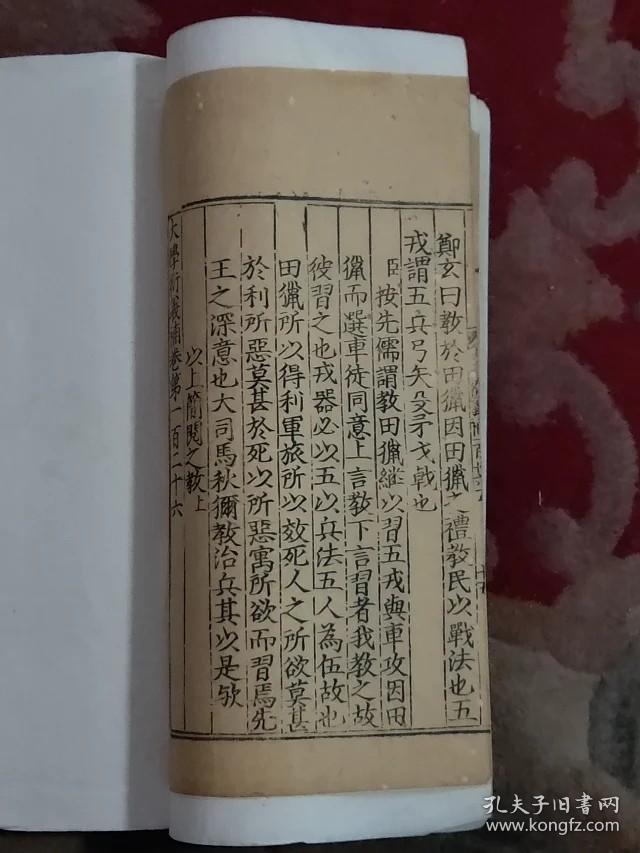 鄭玄曰教於田獵因田獵之禮教民以戰法也五
戎謂五兵弓矢殳矛戈戟也
臣按先儒謂教田獵繼以習五戎與車攻因田
獵而選車徒同意上言教下言習者我教之故
彼習之也戎器必以五以兵法五人為伍故也
田獵所以得利軍旅所以效死人之所欲莫甚
於利所惡莫甚於死以所惡寓所欲而習焉先
王之深意也大司馬秋獮教治兵其以是歟
以上簡閱之教上
大學衍義補卷第一百二十六
孔夫子旧书网
www.kongfz.com